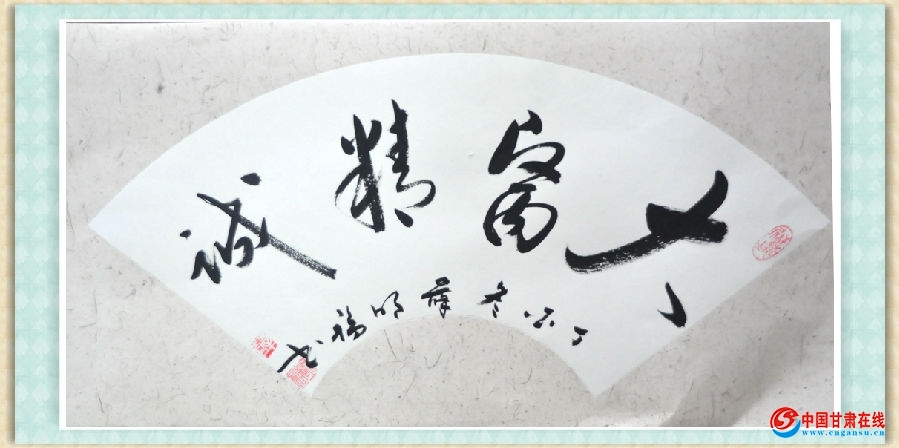 大醫精诚
丁酉冬薛明福书
中国甘肃在线
www.cngansu.cn